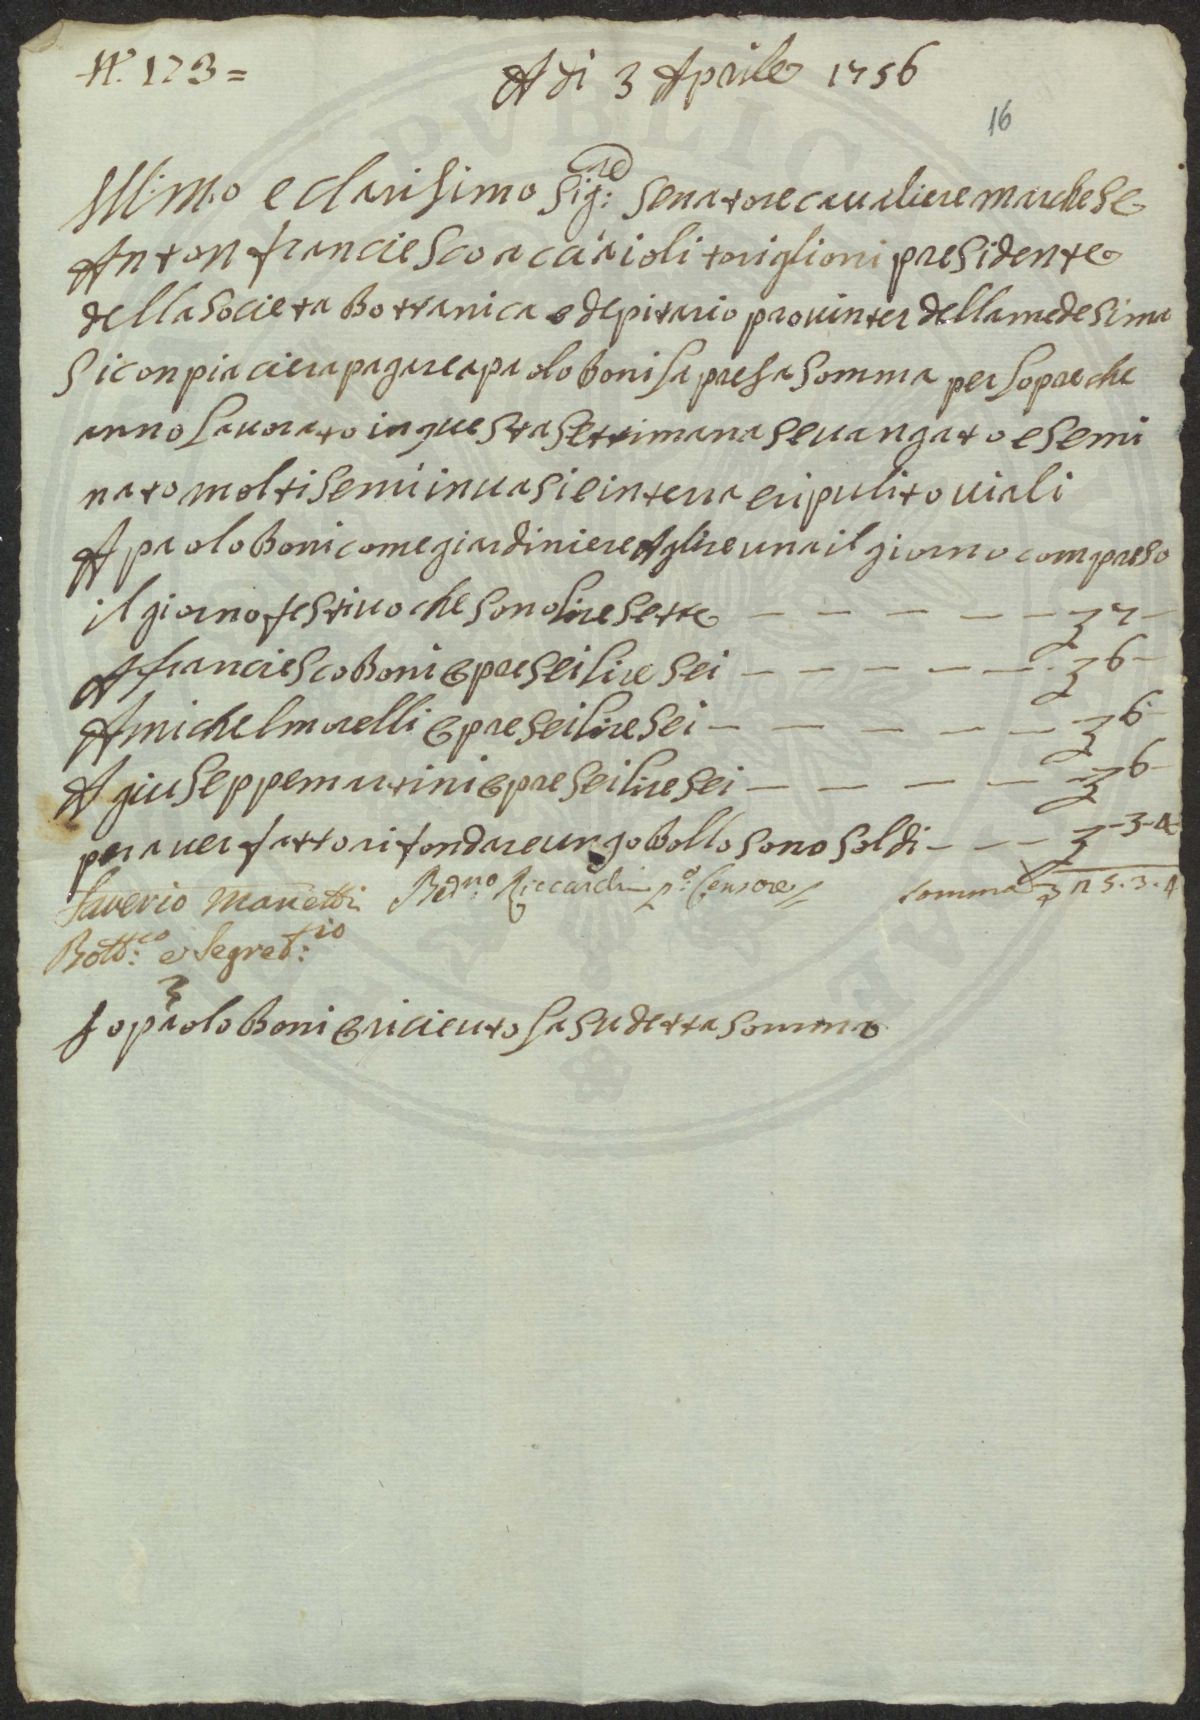 N. 173 =
A di 3 Aprile 1756
16
Ill:mo e clarisimo Sig:re Senatore caualiere marchese
Anton franciesco acciaioli toriglioni presidente
della societa Bottanica e depitario prouinter della medesima
Si conpiaciera pagare a paolo Boni la presa somma per lopre che
anno lauorato in questa settimana se uangato e semi
nato molti semi in uasi e in terra e ripulito uiali
A paolo Boni come giardiniere A lire una il giorno compreso
il giorno festiuo che sono lire sette — — — — — 7 —
A franciesco Boni e pre sei lire sei — — — — — 6 —
A michel morelli e pre sei lire sei — — — — — 6 —
A giuseppe martini e pre sei lire sei — — — — — 6 —
per auer fatto rifondare un Bollo sono soldi — — — - 3 - 4
Saverio Manetti Bern:no Riccardi 2.o Censore somma 25 . 3 . 4
Bott:co e Segret:rio
Io paolo Boni e riceuto la sudetta somma